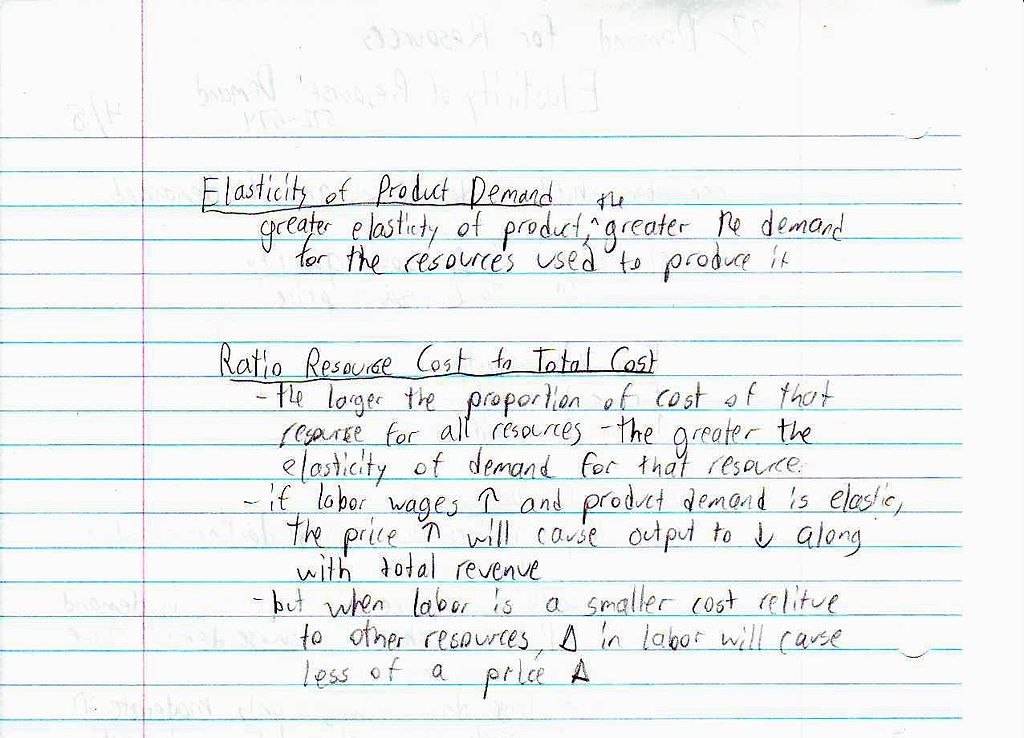 Elasticity of Product Demand
the
greater elasticty of product, ^ greater the demand
for the resources used to produce it
Ratio Resourse Cost to Total Cost
- the larger the proportion of cost of that
resource for all resources - the greater the
elasticity of demand for that resource.
- if labor wages ↑ and product demand is elastic,
the price ↑ will cause output to ↓ along
with total revenue
- but when labor is a smaller cost relitve
to other resources, Δ in labor will cause
less of a price Δ